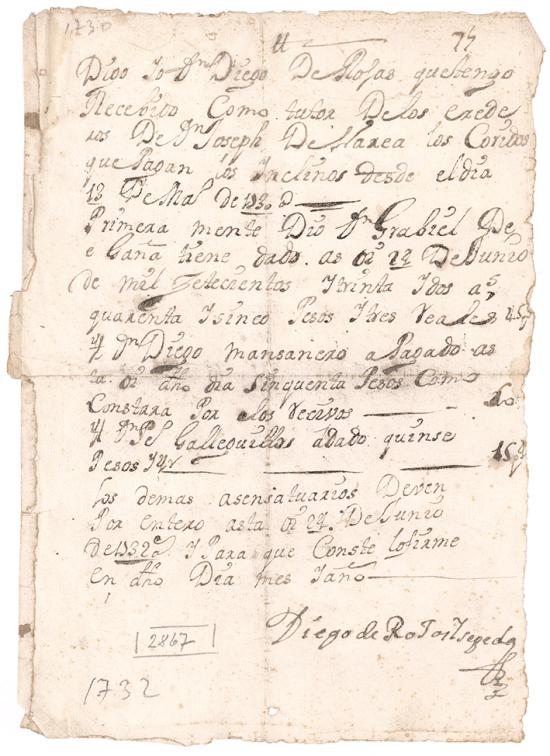 1730
Digo Yo Dn Diego De Rosas que tengo
Recebido Como tutor De los erede
ros De Dn Joseph De Narea los Coridos
que Pagan los Inclinos desde el dia
13 De Mao De 1730
Primera mente Dio Dn Grabiel De
e Gaña tiene dado as oi 24 De Junio
de mil Setecientos Trinta Idos as
quarenta Isinco Pesos Itres Reales 45
y Dn Diego mansanero a Pagado as
ta oi dho dia Sinquenta Pesos Como
Constara Por los Recivos 50
y Dn Po Galleguillos a dado quinse
Pesos Y4r 15
los demas asensatuarios Deven
Por entero asta oi 24 De Junio
de 1732 as Y Para que Conste lo firme
en dho Dia mes Iaño
Diego de Rojas Isepeda
2867
1732